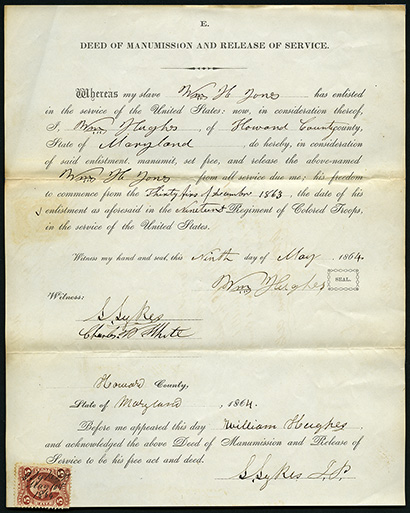 E.
DEED OF MANUMISSION AND RELEASE OF SERVICE.
Whereas my slave Wm H. Jones has enlisted
in the service of the United States; now, in consideration thereof,
I, Wm Hughes, of Howard County county,
State of Maryland, do hereby, in consideration
of said enlistment, manumit, set free, and release the above-named
Wm H Jones from all service due me; his freedom
to commence from the Thirty first of December 1863, the date of his
enlistment as aforesaid in the nineteenth Regiment of Colored Troops,
in the service of the United States.
Witness my hand and seal, this Ninth day of May 1864.
Wm Hughes SEAL.
Witness:
S. Sykes
Charles W White
Howard County,
State of Maryland, 1864.
Before me appeared this day William Hughes,
and acknowledged the above Deed of Manumission and Release of
Service to be his free act and deed.
S Sykes J.P.